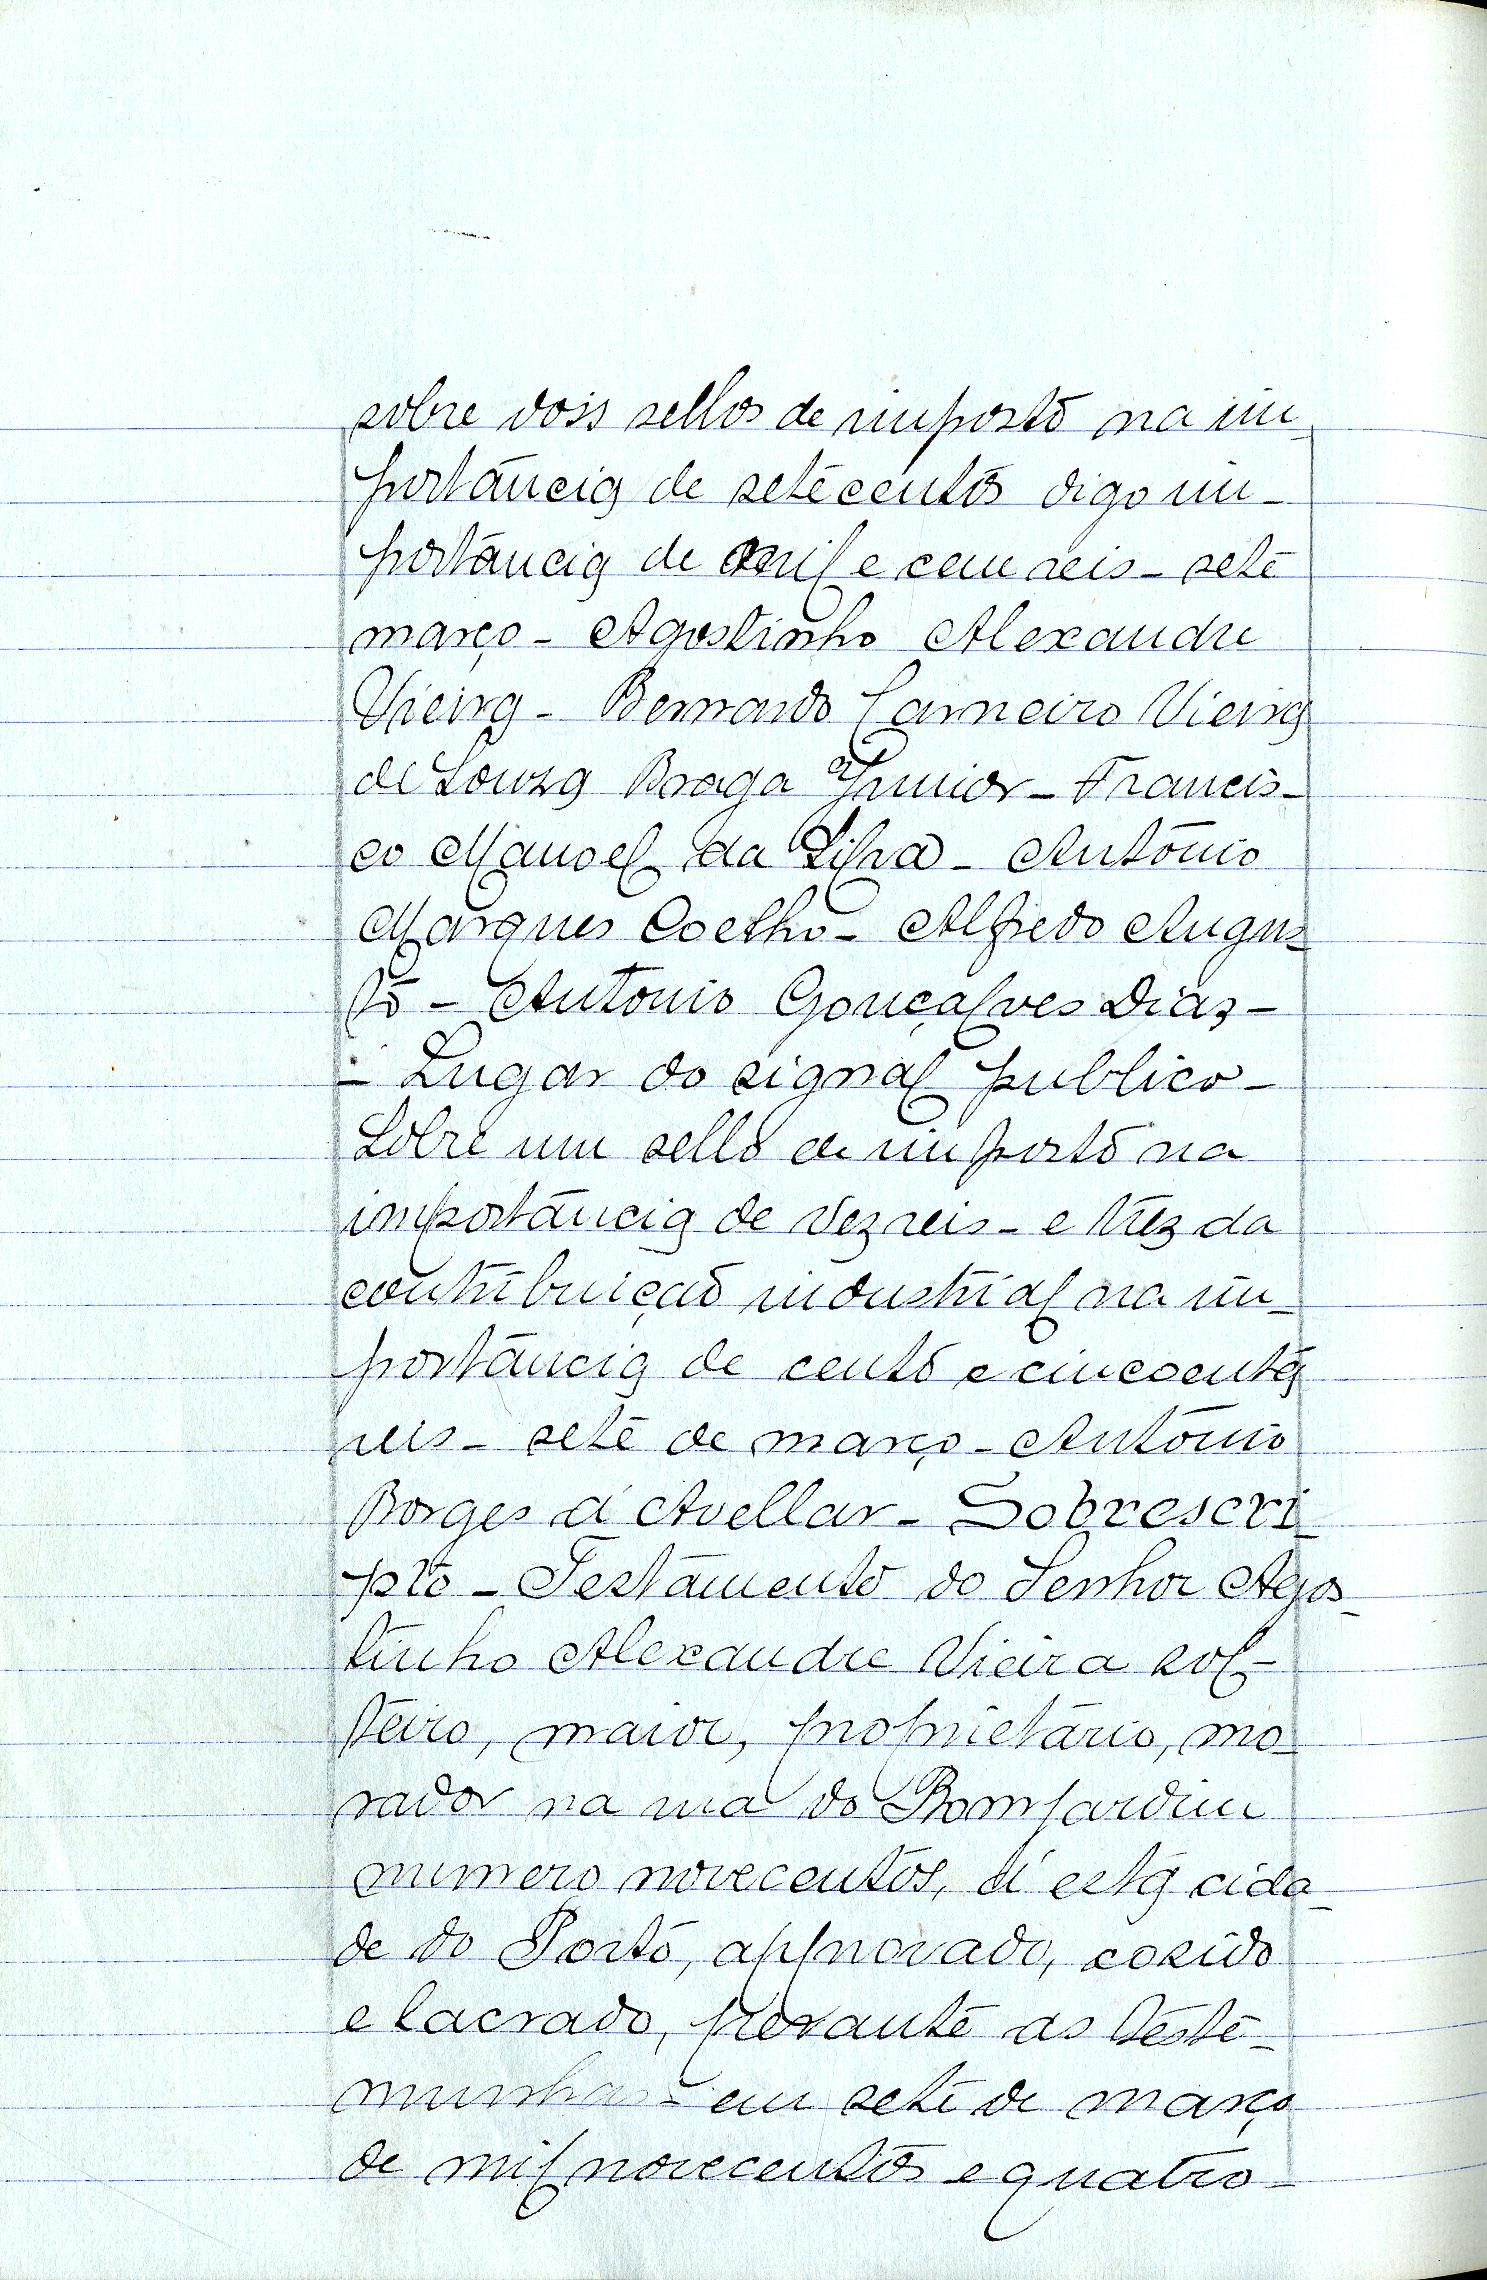 sobre dois sellos de imposto na im-
portancia de setecentos digo im-
portancia de mil e cem reis - sete
março - Agostinho Alexandre
Vieira - Bernardo Carneiro Vieira
de Souza Braga Junior - Francis-
co Manoel da Silva - António
Marques Coelho - Alfredo Augus-
to - Antonio Gonçalves Dias -
- Lugar do signal publico -
Sobre um sello de imposto na
importancia de dez reis - e trez da
contribuição industrial na im-
portancia de cento e cincoenta
reis - sete de março - António
Borges d'Avellar - Sobrescri-
pto - Testamento do Senhor Agos-
tinho Alexandre Vieira sol-
teiro, maior, proprietário, mo-
rador na rua do Bomjardim
numero novecentos, d'esta cida-
de do Porto, approvado, cosido
e lacrado, perante as teste-
munhas - em sete de março
de mil novecentos e quatro -